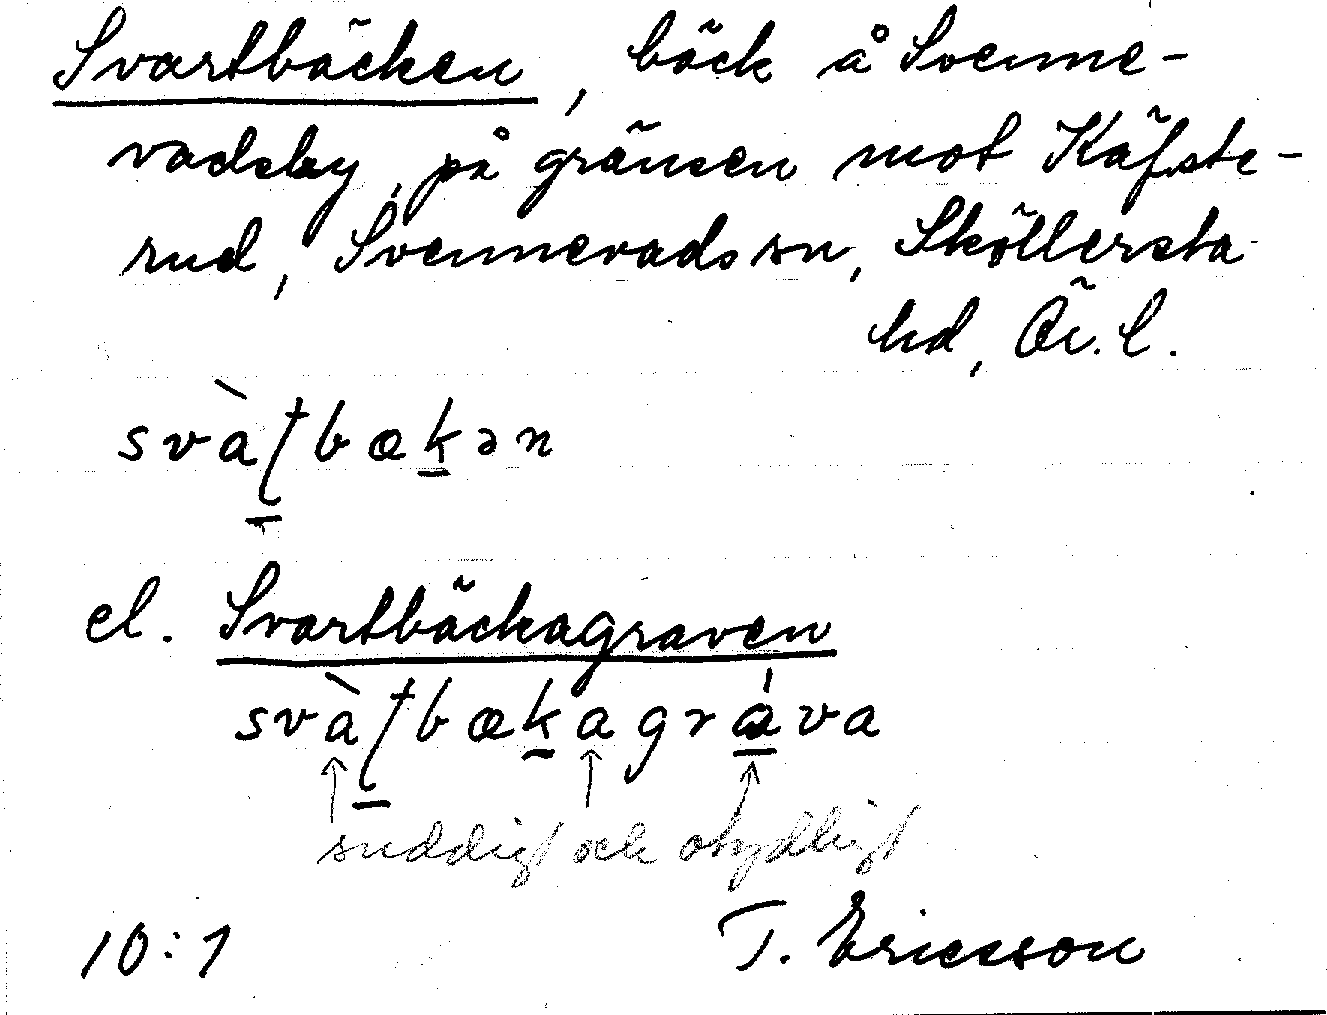 Svartbäcken, bäck å Svenne-
vadsby, på gränsen mot Käfste-
rud, Svennevads sn, Sköllersta
hd, Ör. l.
svàʈbækən
el. Svartbäckagraven
svàʈbækagráva
suddigt och otydligt
10:1 T. Ericsson